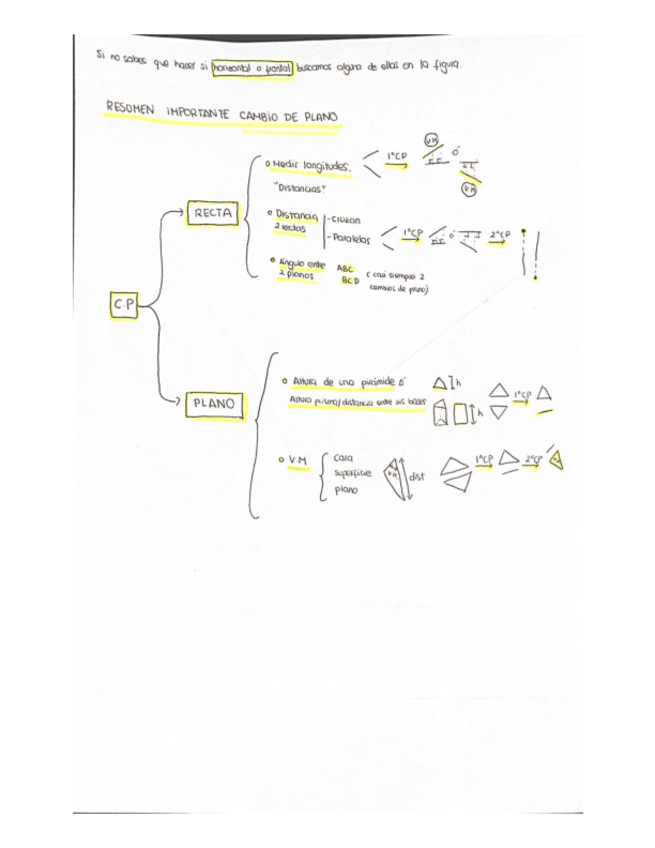 Si no sabes que hacer si horizontal o frontal buscamos alguna de ellas en la figura.
RESUMEN IMPORTANTE CAMBIO DE PLANO
C.P
RECTA
Medir longitudes.
"Distancias"
1ºCP
V.M
ó
V.M
Distancia 2 rectas
- Cruzan
- Paralelas
1ºCP
ó
2ºCP
Ángulo entre 2 planos
ABC
BCD
(casi siempre 2 cambios de plano)
PLANO
Altura de una pirámide ó
Altura prisma/distancia entre sus bases
h
h
1ºCP
V.M
cara
superficie
plano
dist
1ºCP
2ºCP